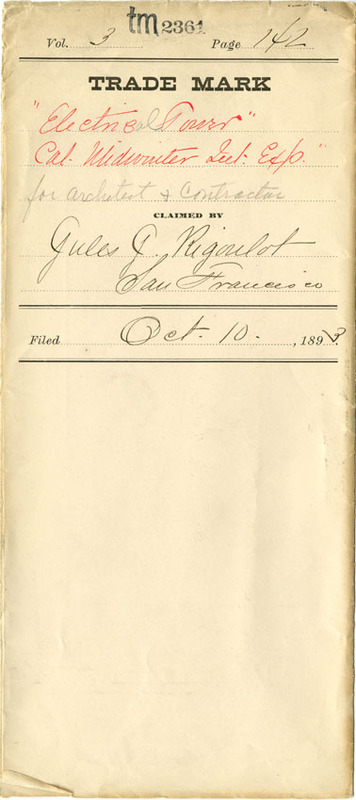 tm 2361
Vol. 3 Page 142
TRADE MARK
"Electrical Tower"
Cal. Midwinter Int. Exp."
for architect & Contractor
CLAIMED BY
Jules G. Rigoulot
San Francisco
Filed Oct. 10. , 1893.